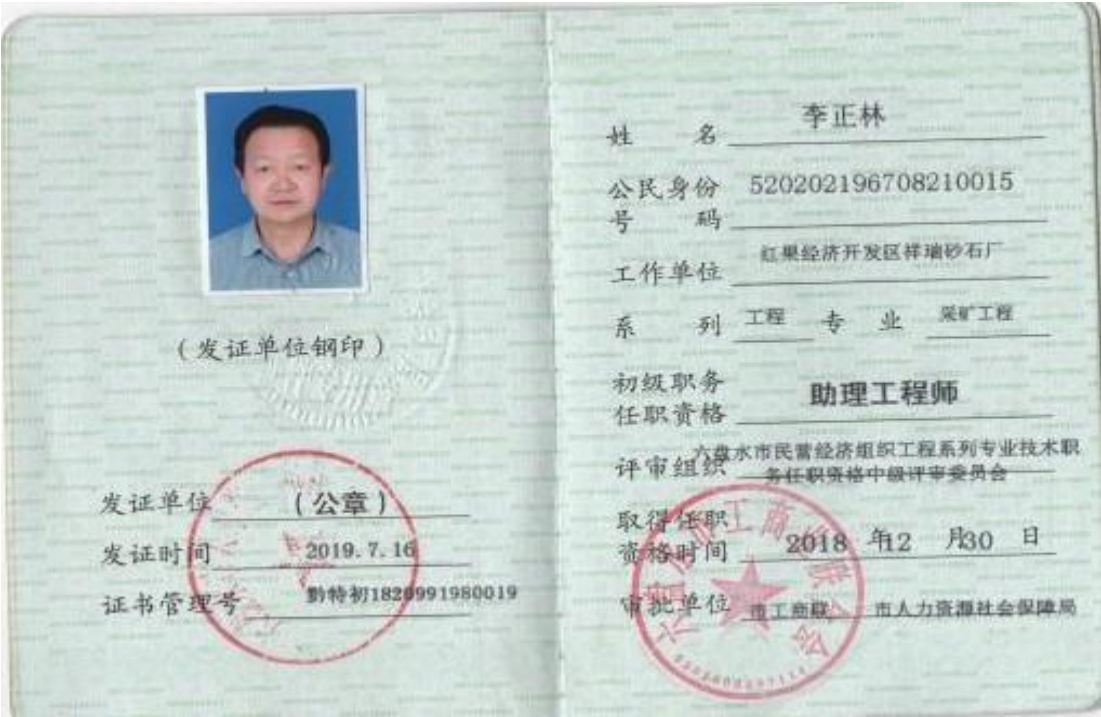 (发证单位钢印)
发证单位 (公章)
发证时间 2019.7.16
证书管理号 黔特初1820991980019
姓 名 李正林
公民身份 520202196708210015
号 码
工作单位 红果经济开发区祥瑞砂石厂
系 列 工程 专 业 采矿工程
初级职务
任职资格 助理工程师
评审组织 六盘水市民营经济组织工程系列专业技术职
务任职资格中级评审委员会
取得任职
资格时间 2018 年12 月30 日
审批单位 市工商联 市人力资源社会保障局
六盘水市工商业联合会